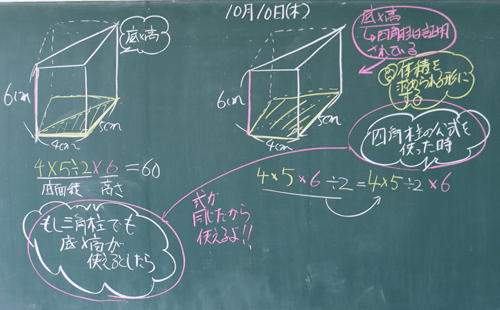 10月10日(木)
底×高
6cm
4cm
5cm
4×5÷2×6=60
底面積 高さ
もし三角柱でも
底×高が
使えるとしたら
底×高
↳四角柱は証明
されている
6cm
4cm
5cm
体積を
求められる形に
する
四角柱の公式を
使った時
4×5×6÷2=4×5÷2×6
式が
同じだから
使えるよ!!